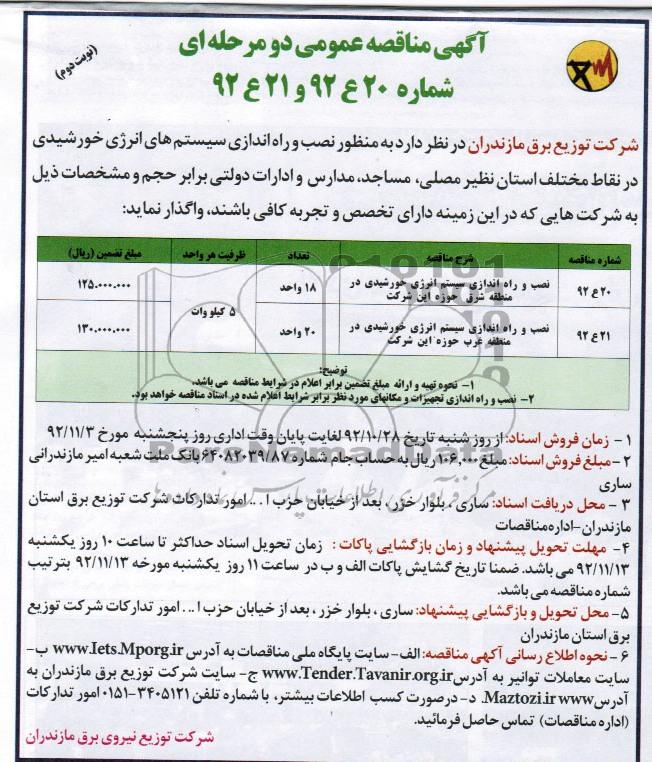 آگهی مناقصه عمومی دو مرحله ای
شماره ۲۰ ع ۹۲ و ۲۱ ع ۹۲
(نوبت دوم)
شرکت توزیع برق مازندران در نظر دارد به منظور نصب و راه اندازی سیستم های انرژی خورشیدی
در نقاط مختلف استان نظیر مصلی، مساجد، مدارس و ادارات دولتی برابر حجم و مشخصات ذیل
به شرکت هایی که در این زمینه دارای تخصص و تجربه کافی باشند، واگذار نماید:
شماره مناقصه شرح مناقصه تعداد ظرفیت هر واحد مبلغ تضمین (ریال)
۲۰ ع ۹۲ نصب و راه اندازی سیستم انرژی خورشیدی در منطقه شرق حوزه این شرکت ۱۸ واحد ۵ کیلو وات ۱۲۵.۰۰۰.۰۰۰
۲۱ ع ۹۲ نصب و راه اندازی سیستم انرژی خورشیدی در منطقه غرب حوزه این شرکت ۲۰ واحد ۱۳۰.۰۰۰.۰۰۰
توضیح:
۱- نحوه تهیه و ارائه مبلغ تضمین برابر اعلام در شرایط مناقصه می باشد.
۲- نصب و راه اندازی تجهیزات و مکانهای مورد نظر برابر شرایط اعلام شده در اسناد مناقصه خواهد بود.
۱- زمان فروش اسناد: از روز شنبه تاریخ ۹۲/۱۰/۲۸ لغایت پایان وقت اداری روز پنجشنبه مورخ ۹۲/۱۱/۳
۲- مبلغ فروش اسناد: مبلغ ۱۰۶,۰۰۰ ریال به حساب جام شماره ۶۴۰۸۲۰۳۹/۸۷ بانک ملت شعبه امیر مازندرانی
ساری
۳- محل دریافت اسناد: ساری، بلوار خزر، بعد از خیابان حزب ا... امور تدارکات شرکت توزیع برق استان
مازندران-اداره مناقصات
۴- مهلت تحویل پیشنهاد و زمان بازگشایی پاکات: زمان تحویل اسناد حداکثر تا ساعت ۱۰ روز یکشنبه
۹۲/۱۱/۱۳ می باشد. ضمنا تاریخ گشایش پاکات الف و ب در ساعت ۱۱ روز یکشنبه مورخه ۹۲/۱۱/۱۳ بترتیب
شماره مناقصه می باشد.
۵- محل تحویل و بازگشایی پیشنهاد: ساری، بلوار خزر، بعد از خیابان حزب ا... امور تدارکات شرکت توزیع
برق استان مازندران
۶- نحوه اطلاع رسانی آگهی مناقصه: الف- سایت پایگاه ملی مناقصات به آدرس www.Iets.Mporg.ir ب-
سایت معاملات توانیر به آدرس www.Tender.Tavanir.org.ir ج- سایت شرکت توزیع برق مازندران به
آدرس Maztozi.ir www. د- درصورت کسب اطلاعات بیشتر، با شماره تلفن ۳۴۰۵۱۲۱-۰۱۵۱ امور تدارکات
(اداره مناقصات) تماس حاصل فرمائید.
شرکت توزیع نیروی برق مازندران